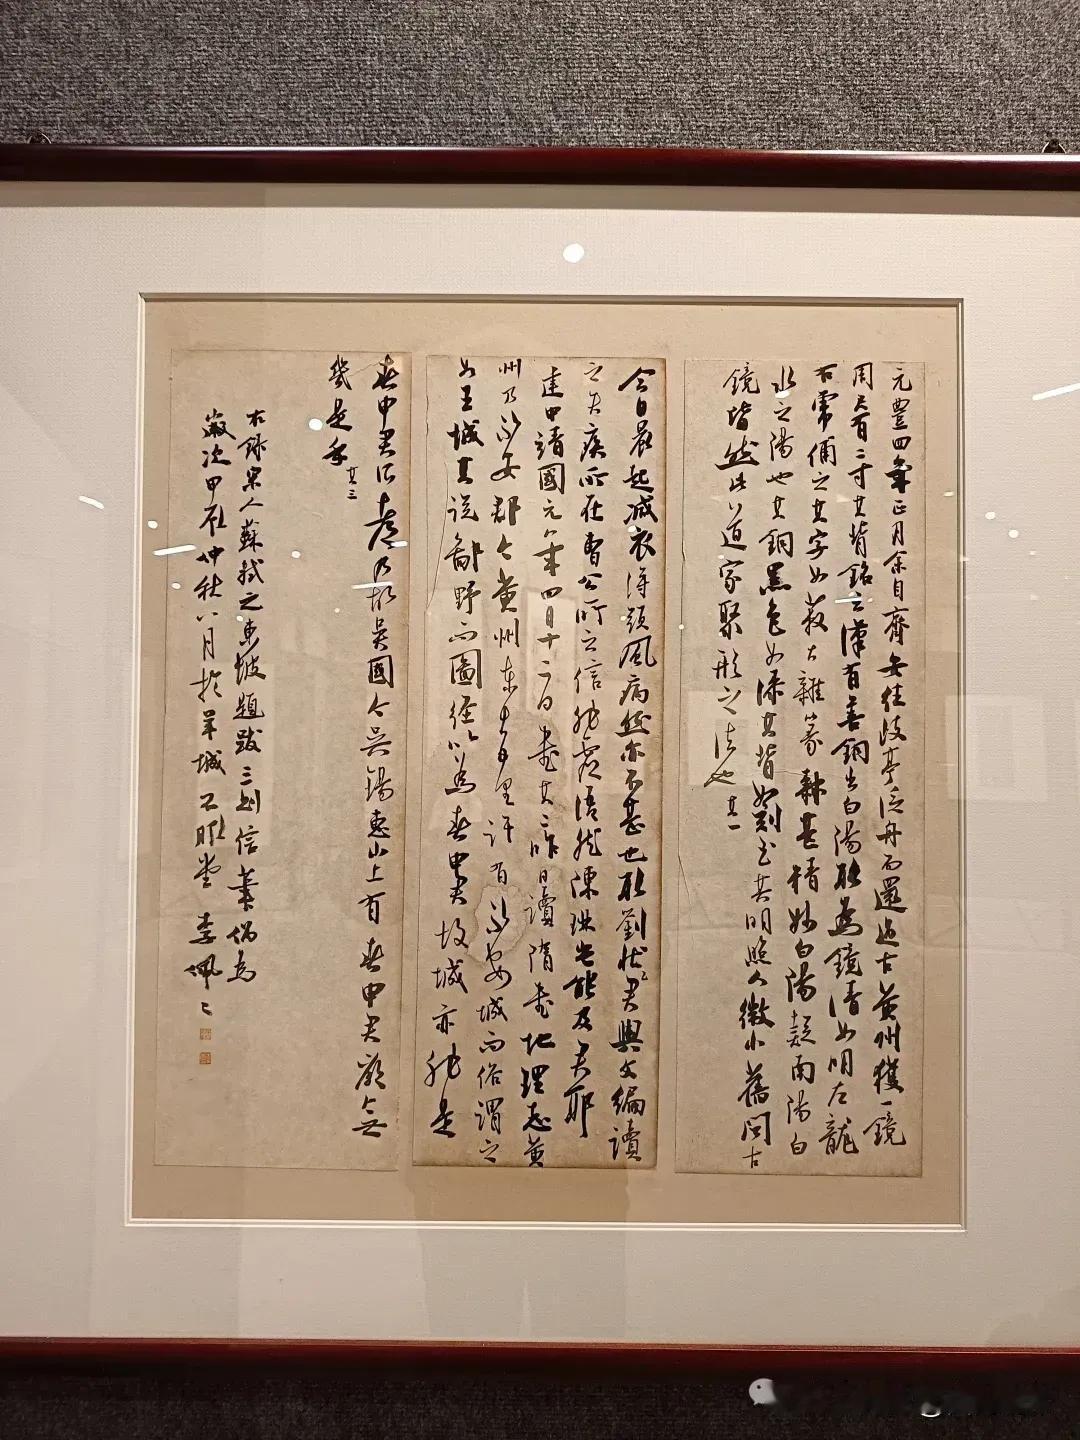 元豐四年正月余自齊安往歧亭泛舟而還過古黃州獲一鏡
周尺有二寸其背銘云漢有善銅出白陽取為鏡清如明左龍
右虎俌之其字如菽大雜篆隸甚精妙白陽疑南陽白
水之陽也其銅黑色如漆其背如刻玉其明照人微小舊問古
鏡皆然此道家聚形之法也 其一
今日晨起減衣得頭風病然亦不甚也取劉狀君與文編讀
之失疾所在曹公所云信非虛語然陳琳豈能及君耶
建中靖國元年四月十二日書 其二 昨日讀隋書地理志黃
州乃永安郡今黃州東十五里許有永安城而俗謂之
女王城其說鄙野而圖經以為春申君故城亦非是
春申君所都乃故吳國今吳錫惠山上有春申君廟庶
幾是乎 其三
右錄宋人蘇軾之東坡題跋三則信筆偶為
歲次甲辰仲秋八月於羊城 堂 李佩